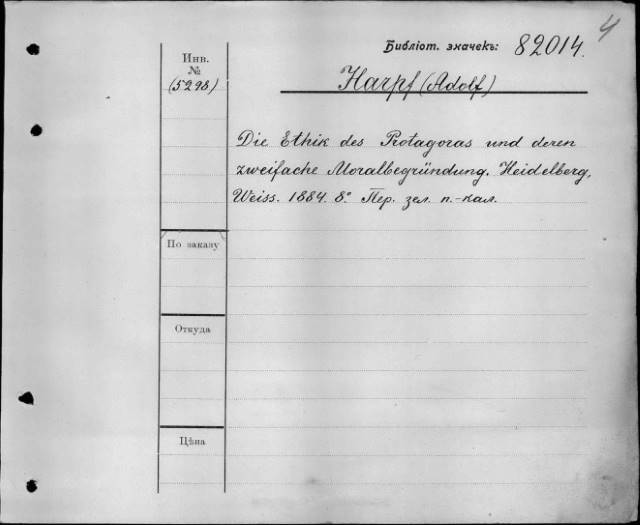 4
Библіот. значекъ: 82014.
Инв.
№
(5298)
Harpf (Adolf)
Die Ethik des Protagoras und deren
zweifache Moralbegründung. Heidelberg,
Weiss. 1884. 8° Пер. зел. п.-кал.
По заказу
Откуда
Цѣна